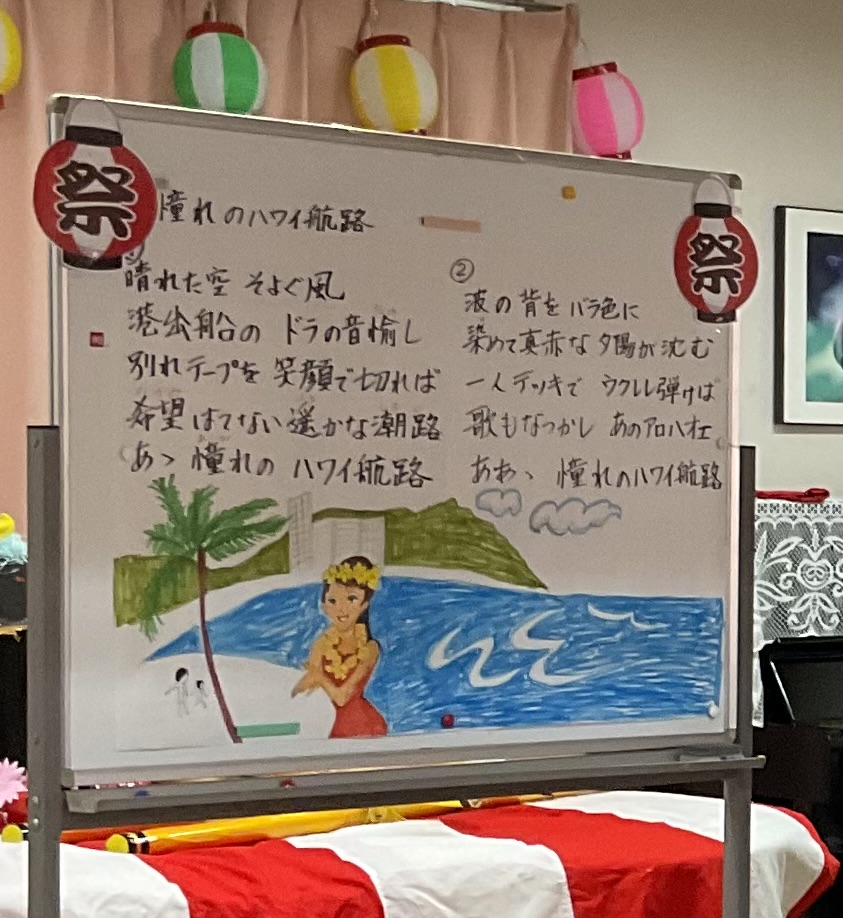 祭
祭
憧れのハワイ航路
晴れた空 そよぐ風
港出船の ドラの音愉し
別れテープを 笑顔で切れば
希望はてない遥かな潮路
あゝ 憧れの ハワイ航路
②
波の背を バラ色に
染めて真赤な 夕陽が沈む
一人デッキで ウクレレ弾けば
歌もなつかし あのアロハオエ
ああゝ 憧れのハワイ航路